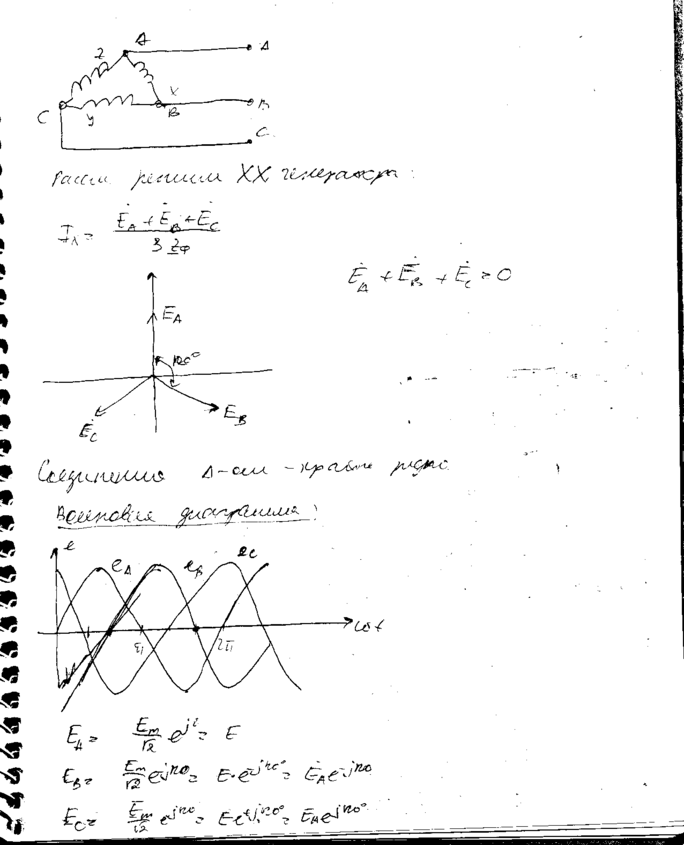 A
Z
A
C
X
B
B
y
C
Рассм режим XX генератора:
I_Λ = (Ė_A + Ė_B + Ė_C) / 3 Z_φ
Ė_A + Ė_B + Ė_C = 0
E_A
120°
E_B
Ė_C
Соединение Δ-ом - крайне редко
Волновая диаграмма:
e
e_A
e_B
e_C
ωt
π
2π
E_A = E_m/√2 e^j = E
E_B = E_m/√2 e^-j120 = E·e^-j120° = Ė_A e^-j120
E_C = E_m/√2 e^j120 = E e^+j120° = E_A e^j120°